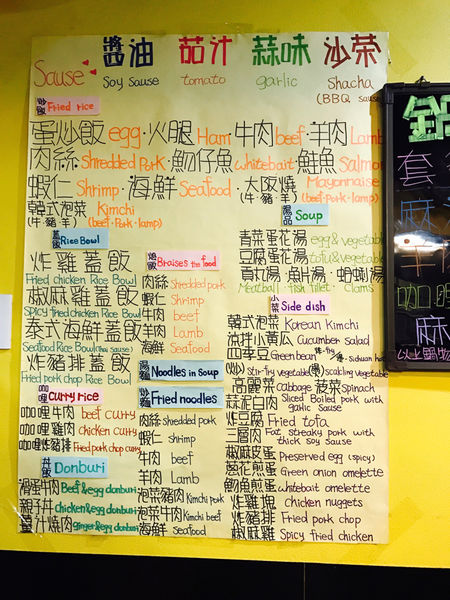 醬油 茄汁 蒜味 沙茶
Sause Soy Sause tomato garlic Shacha
(BBQ sause
炒飯 Fried rice
蛋炒飯 egg·火腿 Ham·牛肉 beef·羊肉 Lamb
肉絲 Shredded Pork·魩仔魚 Whitebait·鮭魚 Salmon
蝦仁 Shrimp·海鮮 Seafood·大阪燒 Mayonnaise
(牛·羊) (beef·Pork·lamp)
韓式泡菜 Kimchi
(牛·豬·羊) (beef·Pork·lamp)
湯品 Soup
青菜蛋花湯 egg & vegetable
豆腐蛋花湯 tofu & vegetable
貢丸湯·魚片湯·蛤蜊湯
Meatball · fish fillet · Clams
蓋飯 Rice Bowl
炸雞蓋飯
Fried chicken Rice Bowl
椒麻雞蓋飯
Spicy fried chicken Rice Bowl
泰式海鮮蓋飯
Seafood Rice Bowl (Thai Sause)
炸豬排蓋飯
Fried pork chop Rice Bowl
Braises the food
肉絲 Shredded pork
蝦仁 Shrimp
牛肉 beef
羊肉 Lamb
海鮮 Seafood
湯麵 Noodles in Soup
炒麵 Fried noodles
肉絲 shredded pork
蝦仁 shrimp
牛肉 beef
羊肉 Lamb
泡菜豬肉 Kimchi pork
泡菜牛肉 Kimchi beef
海鮮 seafood
Curry rice
咖哩牛肉 beef curry
咖哩雞肉 chicken curry
咖哩豬排 Fried pork chop curry
丼飯 Donburi
滑蛋牛肉 Beef & egg donburi
親子丼 chicken & egg donburi
薑汁燒肉 ginger & egg donburi
小菜 Side dish
韓式泡菜 Korean Kimchi
涼拌小黃瓜 Cucumber salad
四季豆 Green bean
Stir-fry vegetable scalding vegetable
高麗菜 Cabbage 菠菜 Spinach
蒜泥白肉 Sliced Boiled pork with
garlic Sause
炸豆腐 Fried tofa
三層肉 Fat streaky pork with
thick soy Sause
椒麻皮蛋 Preserved egg (spicy)
蔥花煎蛋 Green onion omelette
魩魚煎蛋 whitebait omelette
炸雞塊 chicken nuggets
炸豬排 Fried pork chop
椒麻雞 Spicy fried chicken
鍋
套
麻
牛
咖哩
麻
以上鍋物